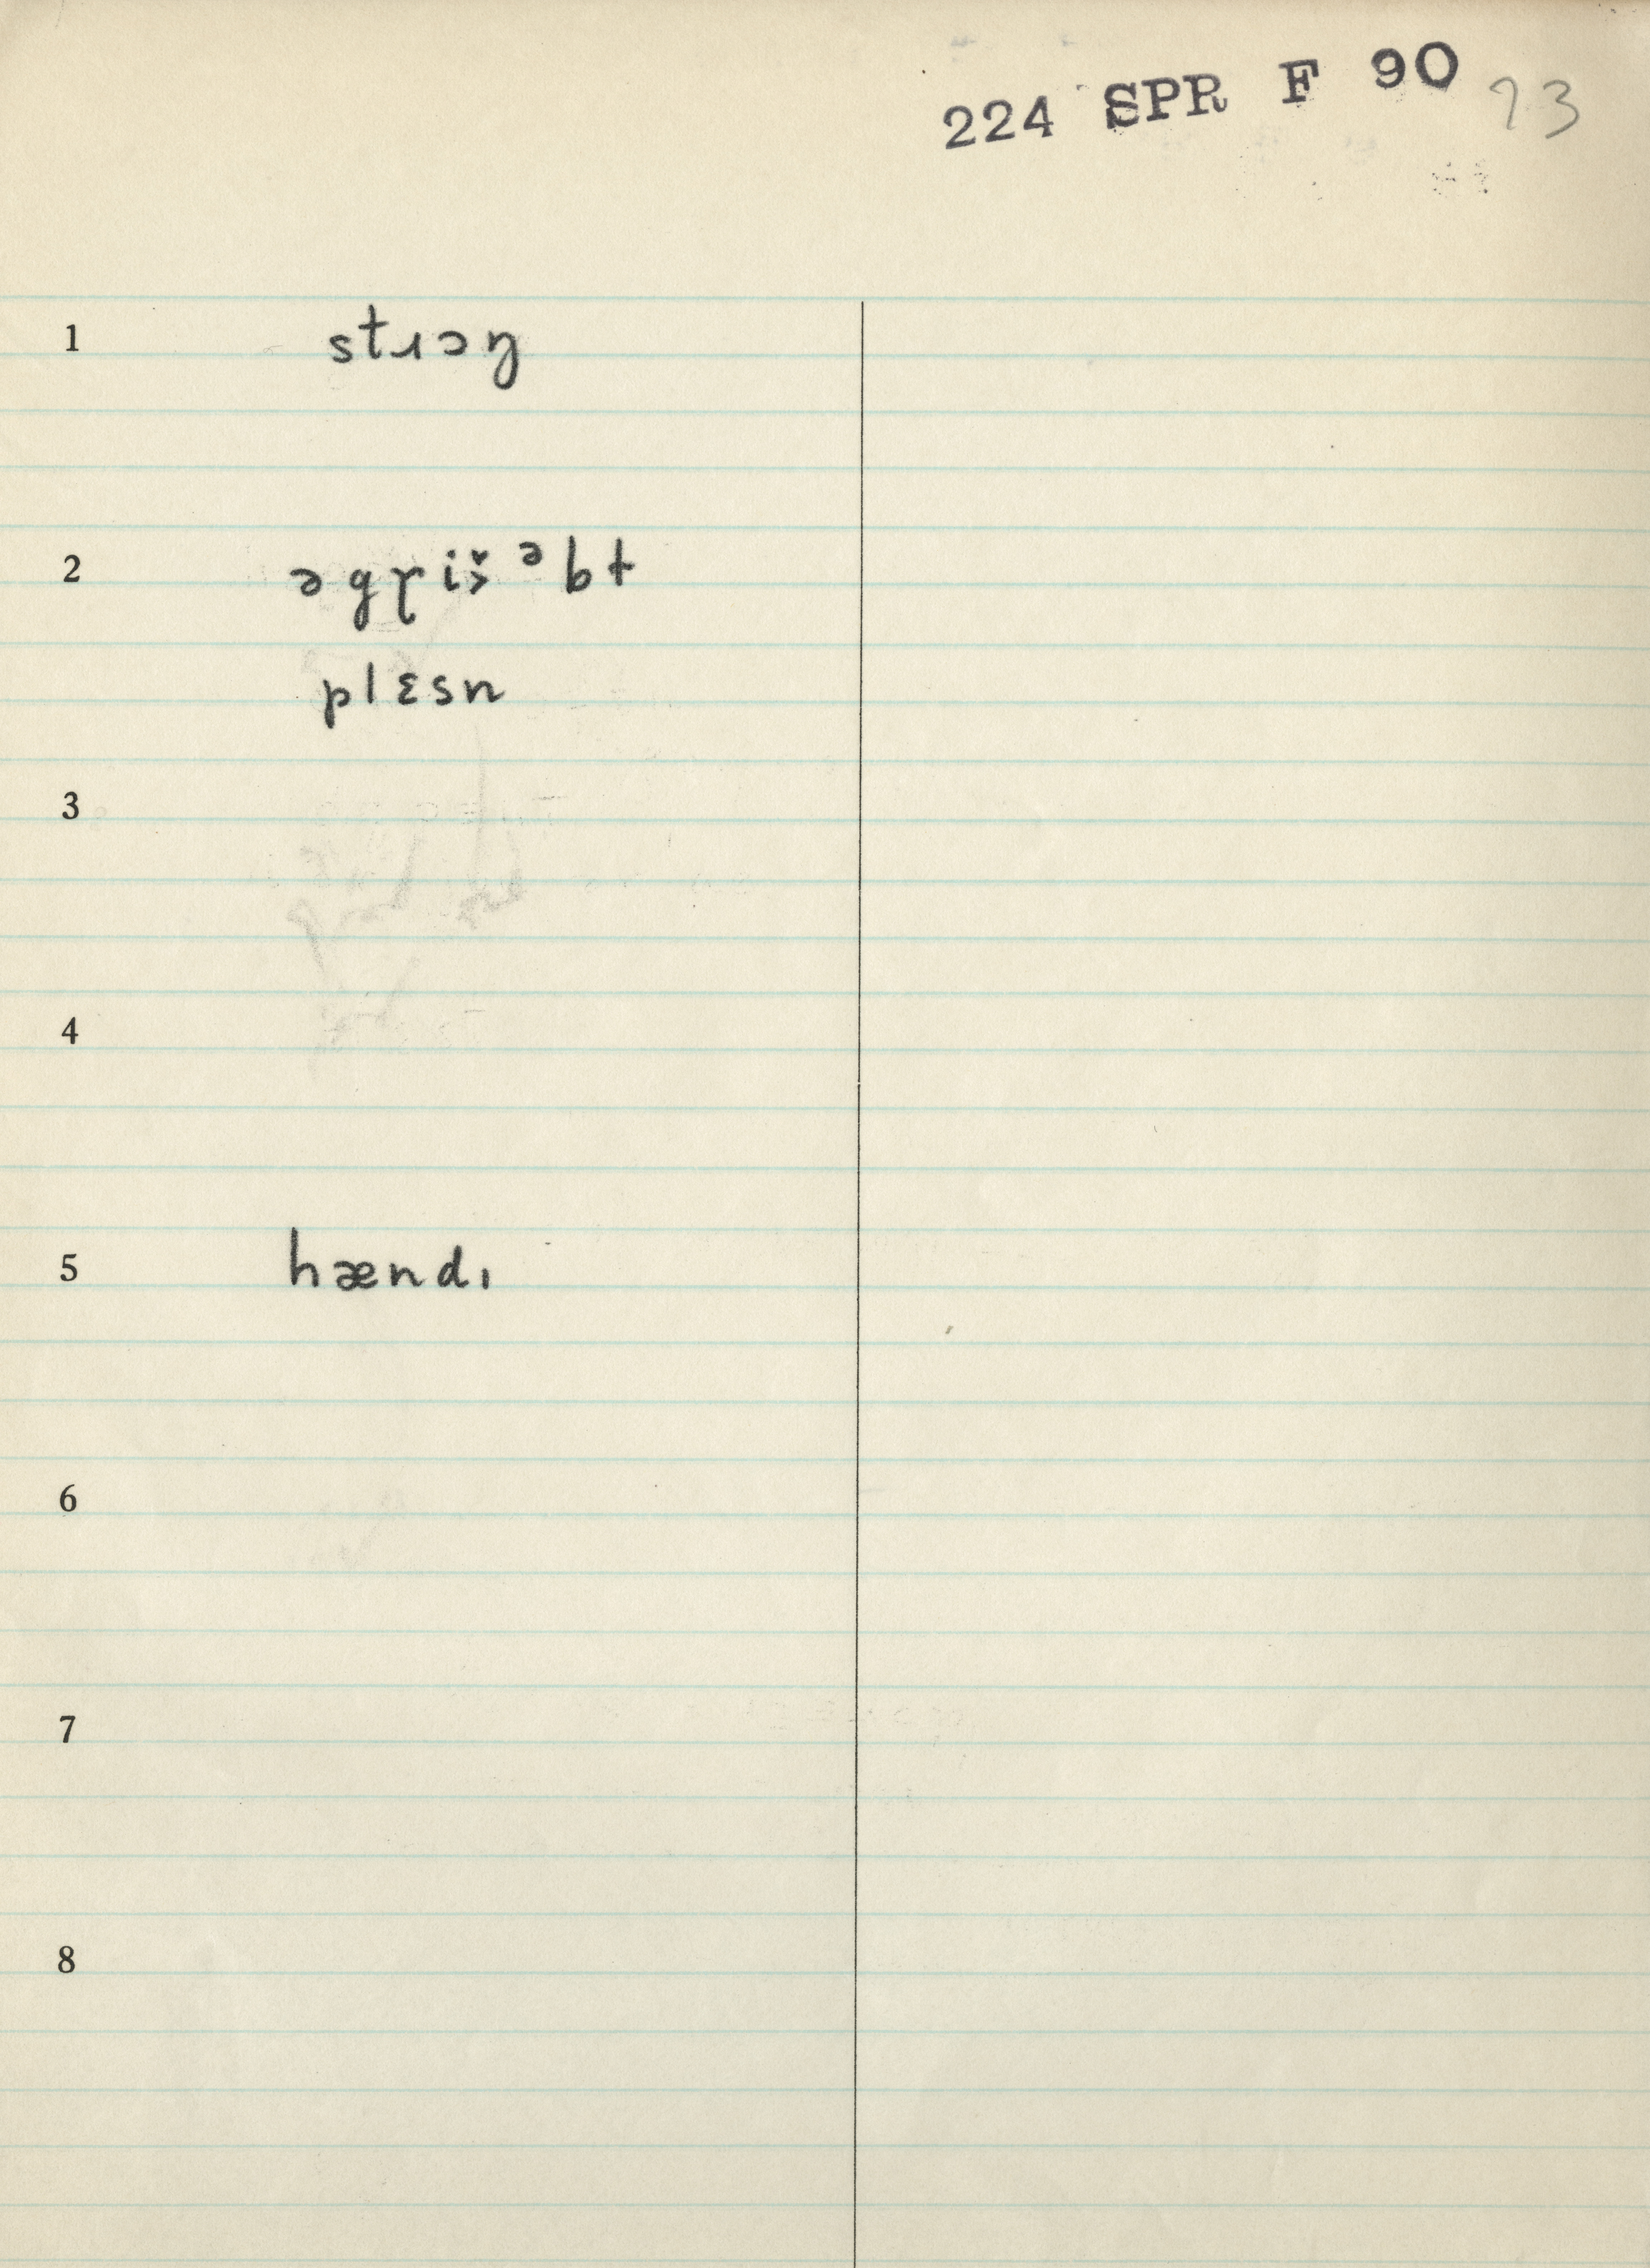 224 SPR F 90 73
1 stɹɔŋ
2 əgɤi ̌s ᵊbt
plɛsn
3
4
5 hændı
6
7
8